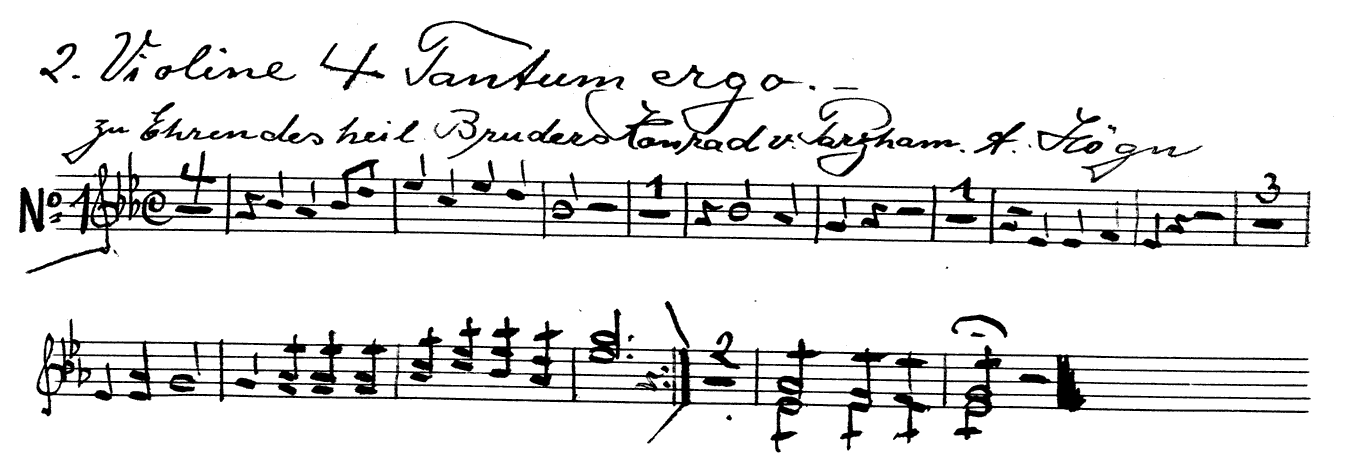 2. Violine 4 Tantum ergo. –
zu Ehren des heil. Bruders Konrad v. Parzham. A. Högn
No 1 4 1 1 3
2